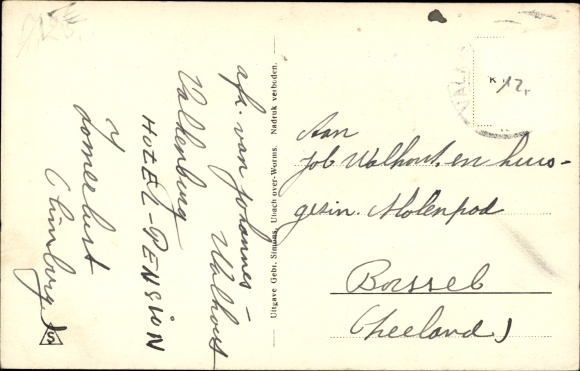 afz. van Johannes -
Walhout
Valkenburg
HOTEL-PENSION
Zomerlust
(Limburg)
S
Uitgave Gebr. Simons, Ubach over-Worms. Nadruk verboden.
K 12
Aan
Job Walhout en huis-
gezin. Molenpad
Borssel
(Zeeland)